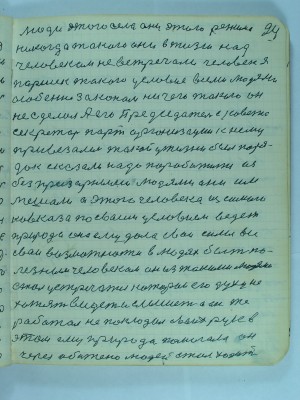 люди этого села они этого режима 24
никогда такого они в жизни над
человеком не встречали человек я
такого условие всем людям
особенно законом ничего такого он
не сделал Его Председатель
секретар парт организации к нему
привезали такой жизни был поря-
док сказали надо поработать
без людями они им
мешали а этого человека из самого
кавказа по своим условием ведет
природа она ему дала свои силы и
свои возможности в людях быть по-
лезным человеком он из такими людьми
стал встречатся которые его духу не
хотят видеть и слышать а он же
работал не покладая своих рук в
этом ему природа помогала он
через обижено людей стал ходить